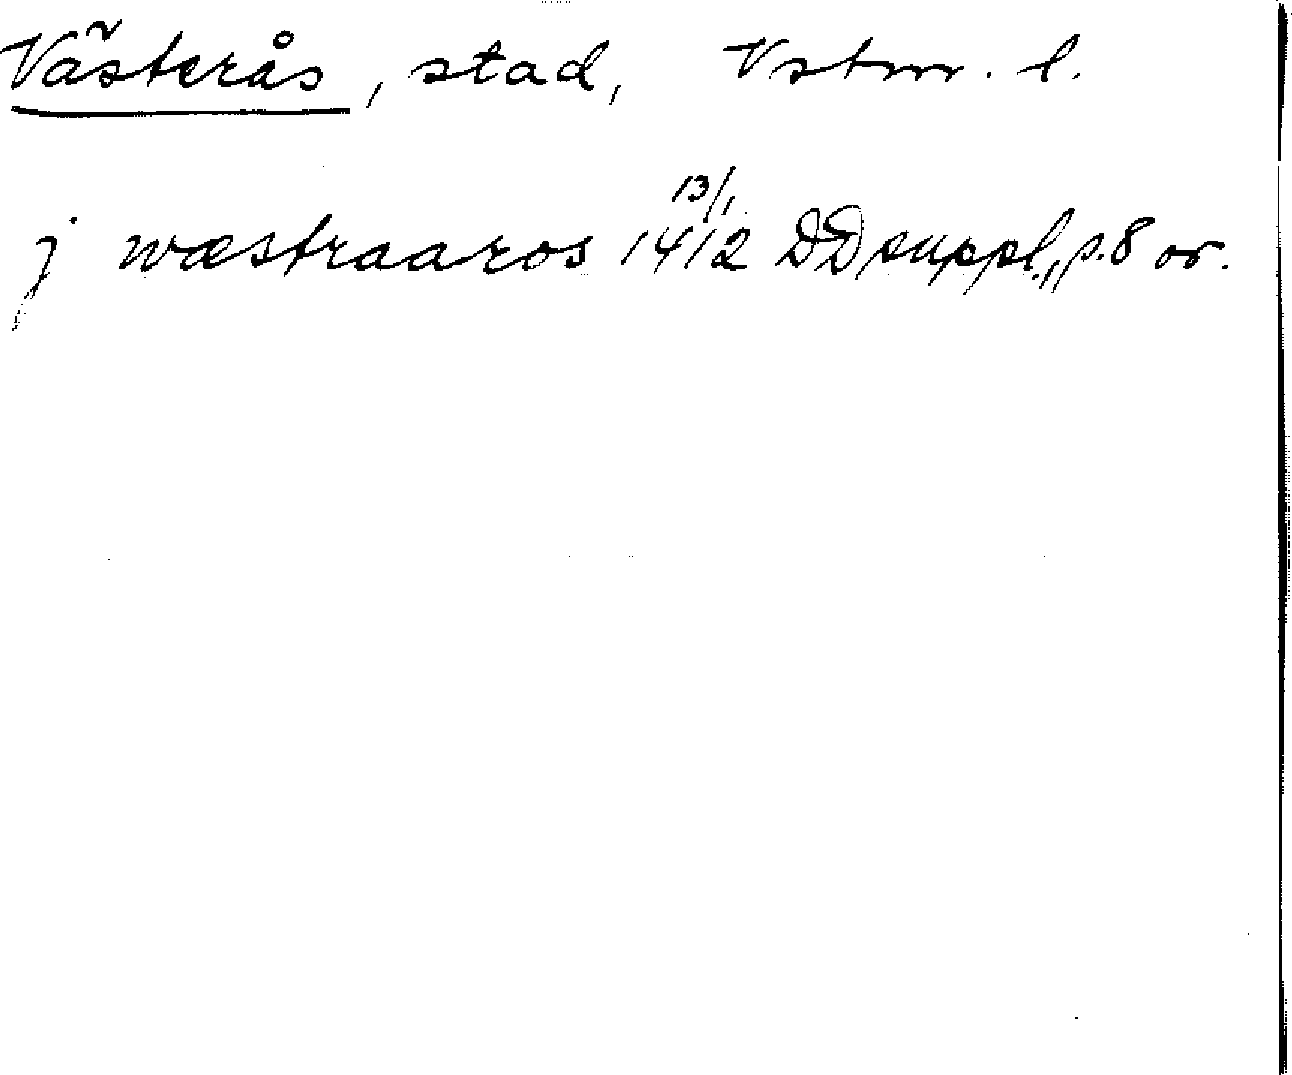 Västerås, stad, Vstm. l.
j wæstraaros 13/1 1412 DD suppl., p. 8 or.